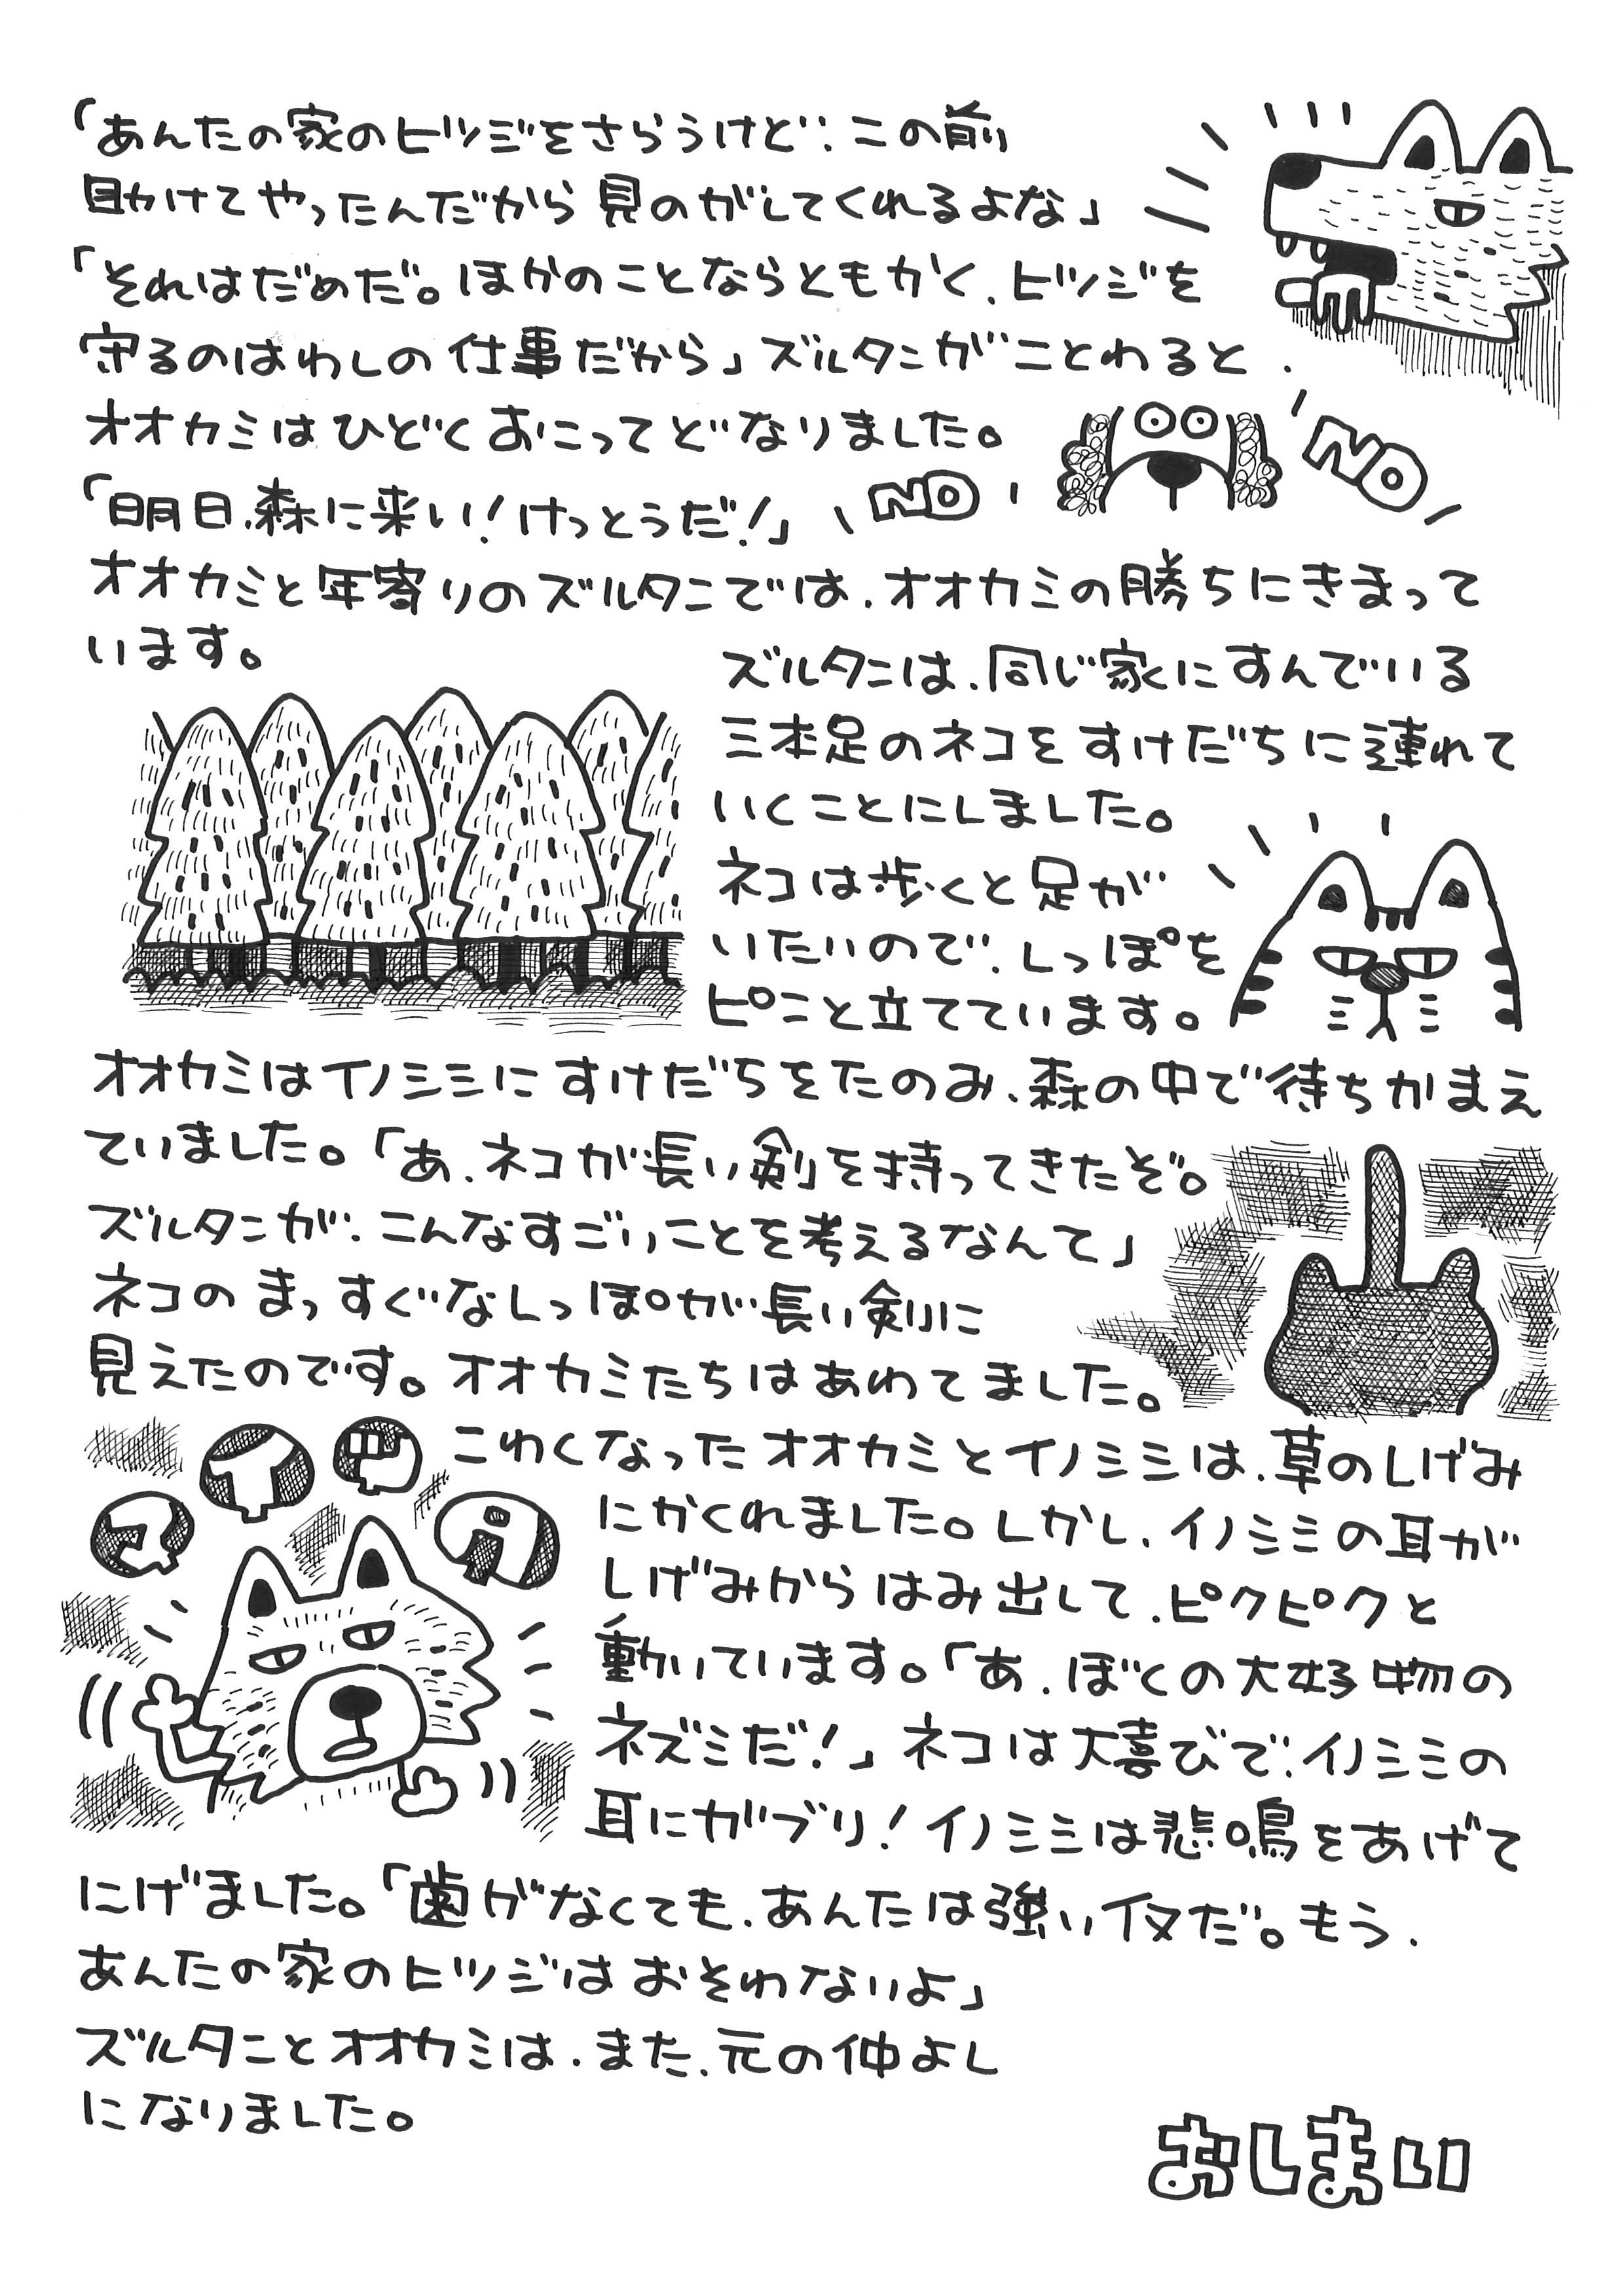 「あんたの家のヒツジをさらうけど、この前
助けてやったんだから見のがしてくれるよな」
「それはだめだ。ほかのことならともかく、ヒツジを
守るのはわしの仕事だから」ズルタンがことわると、
オオカミはひどくおこってどなりました。
NO
「明日、森に来い!けっとうだ!」
NO
オオカミと年寄りのズルタンでは、オオカミの勝ちにきまって
います。
ズルタンは、同じ家にすんでいる
三本足のネコをすけだちに連れて
いくことにしました。
ネコは歩くと足が
いたいので、しっぽを
ピンと立てています。
オオカミはイノシシにすけだちをたのみ、森の中で待ちかまえ
ていました。「あ、ネコが長い剣を持ってきたぞ。
ズルタンが、こんなすごいことを考えるなんて」
ネコのまっすぐなしっぽが長い剣に
見えたのです。オオカミたちはあわてました。
こわくなったオオカミとイノシシは、草のしげみ
にかくれました。しかし、イノシシの耳が
しげみからはみ出して、ピクピクと
動いています。「あ、ぼくの大好物の
ネズミだ!」ネコは大喜びで、イノシシの
耳にガブリ!イノシシは悲鳴をあげて
にげました。「歯がなくても、あんたは強いイヌだ。もう、
あんたの家のヒツジはおそわないよ」
ズルタンとオオカミは、また、元の仲よし
になりました。
おしまい